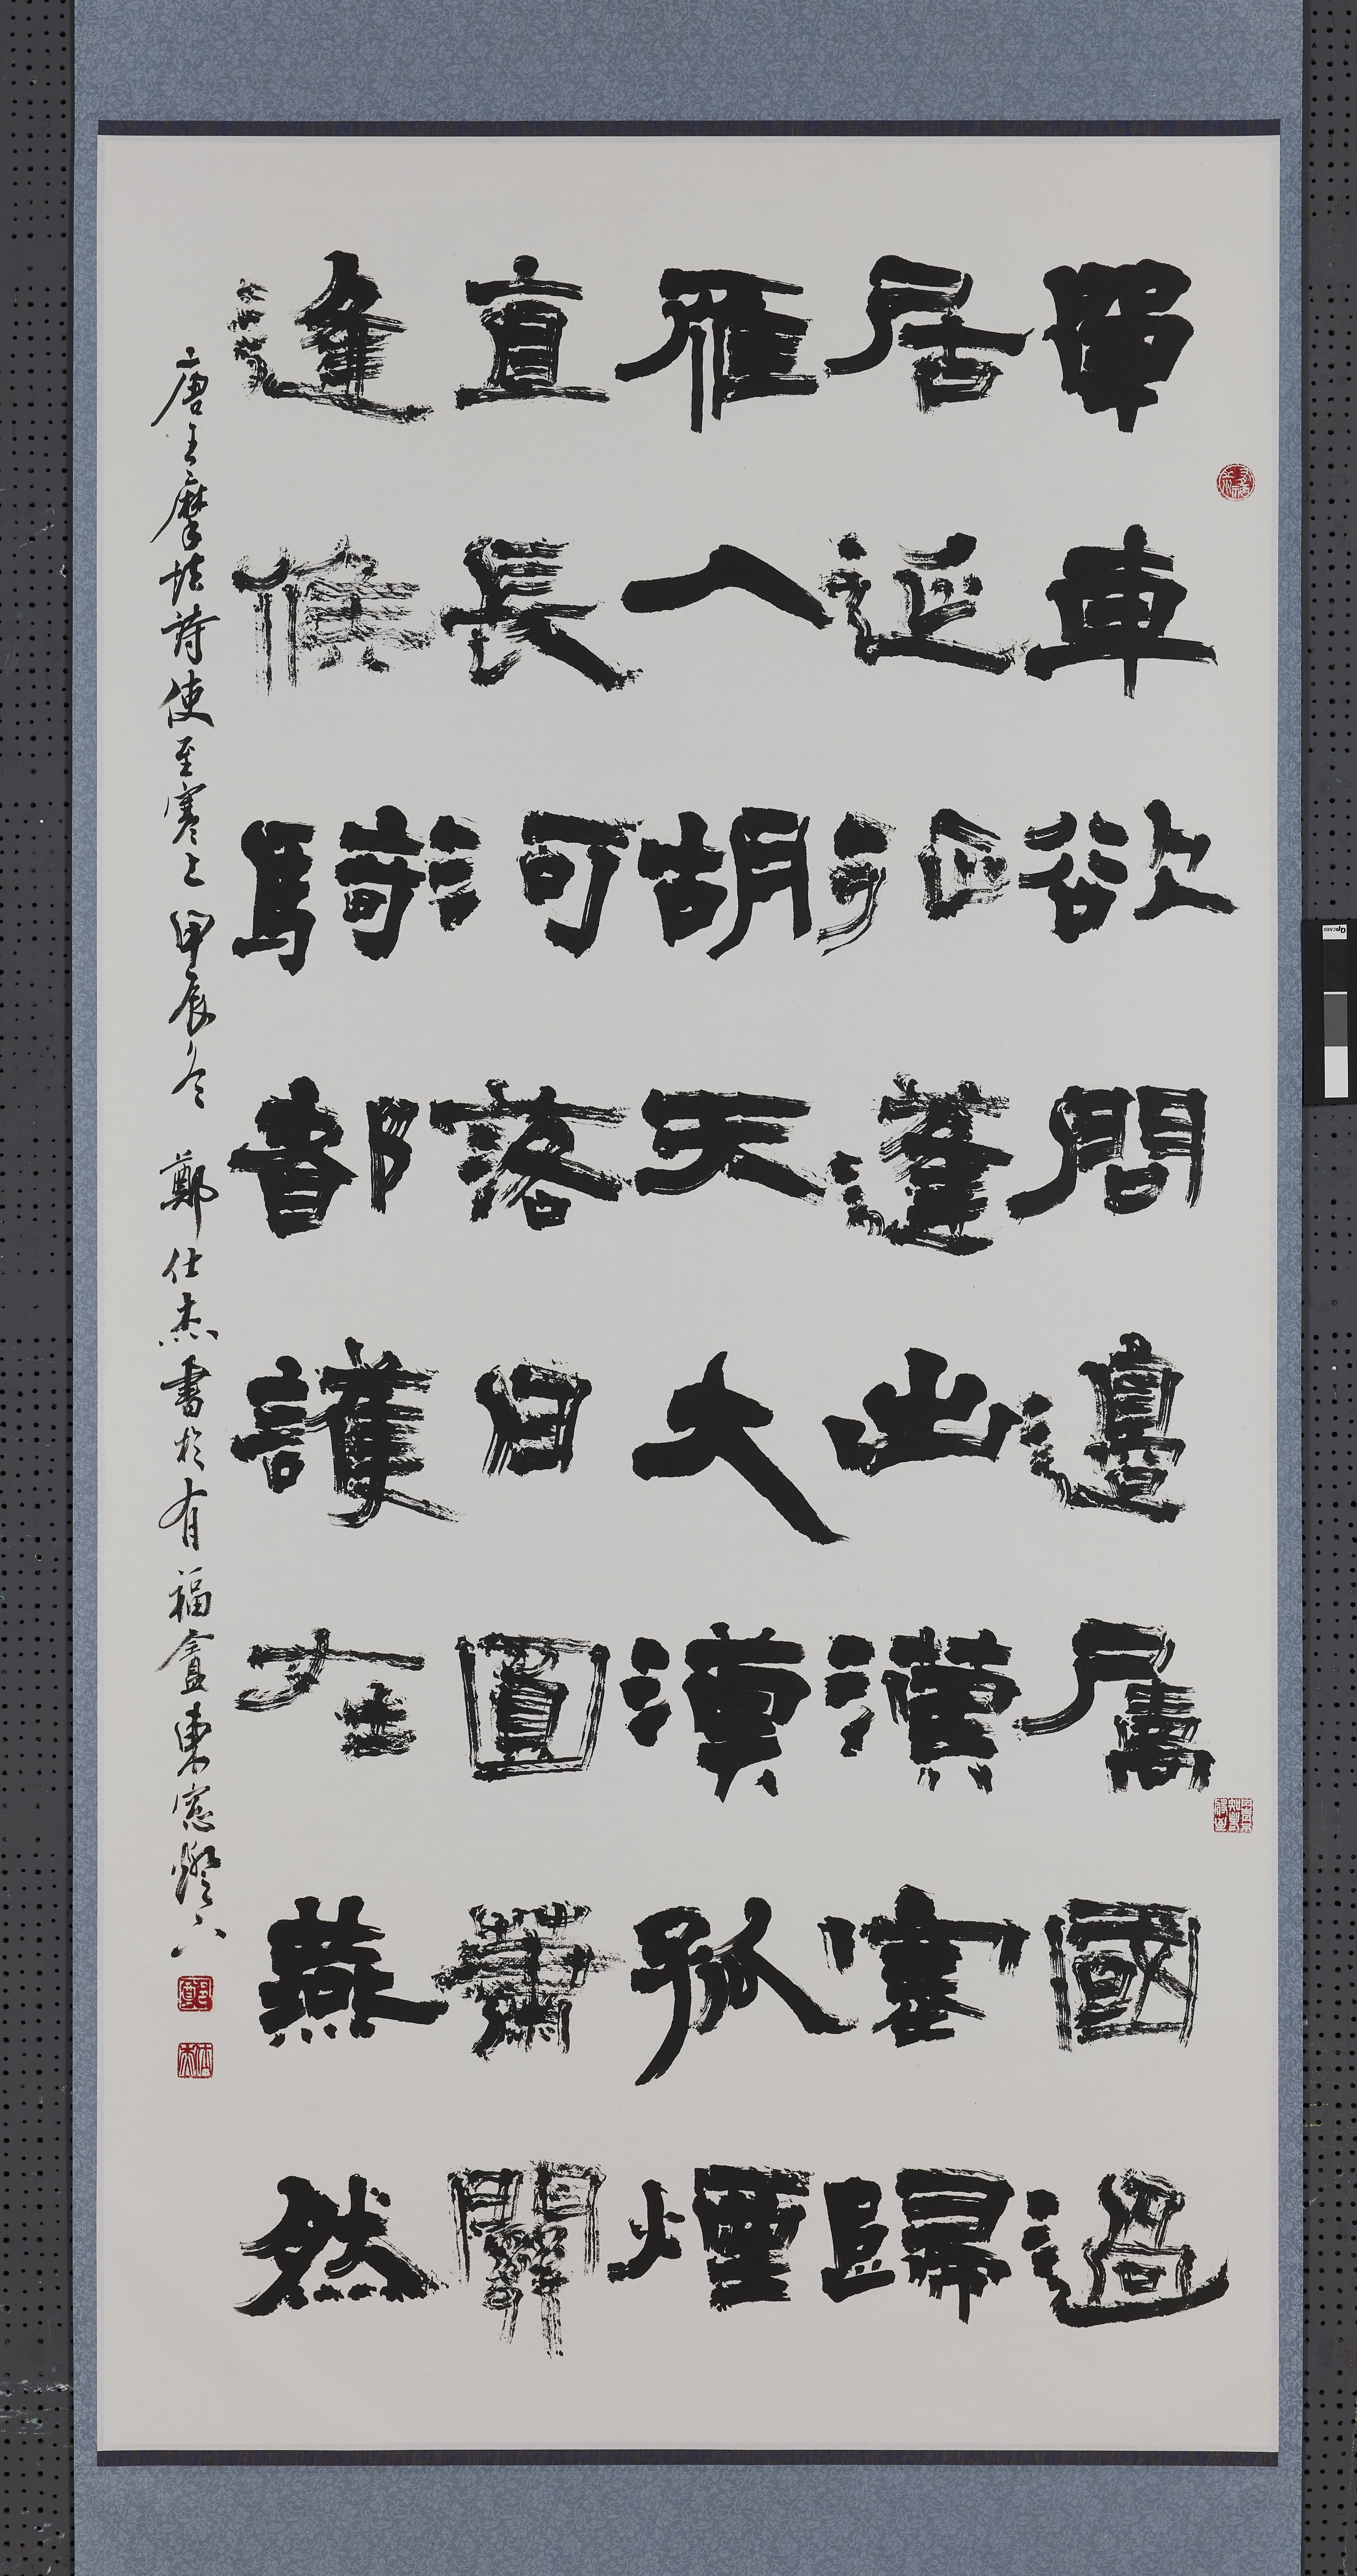 單車欲問邊屬國過
居延征蓬出漢塞歸
雁入胡天大漠孤煙
直長河落日圓蕭關
逢候騎都護在燕然
唐王摩詰詩使至塞上 甲辰冬 鄭仕杰書於有福盦東窓燈下